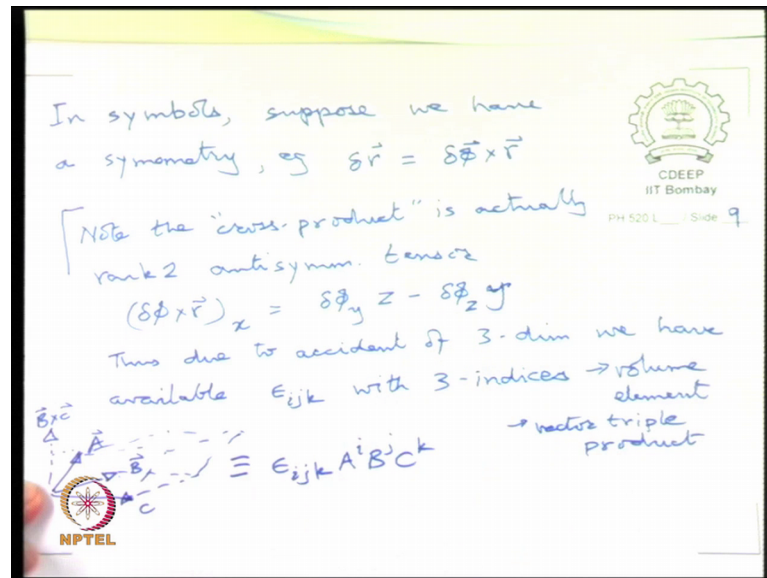 In symbols, suppose we have
a symometry, eg δr⃗ = δφ⃗ × r⃗
CDEEP
IIT Bombay
PH 520 L___ / Slide 9
[Note the "cross-product" is actually
rank 2 antisymm. tensor
(δφ × r⃗)_x = δφ_y z - δφ_z y
Thus due to accident of 3-dim we have
available ϵ_ijk with 3-indices → volume
element
→ vector triple
product
B⃗×C⃗
A⃗
B⃗
C
≡ ϵ_ijk A^i B^j C^k
NPTEL